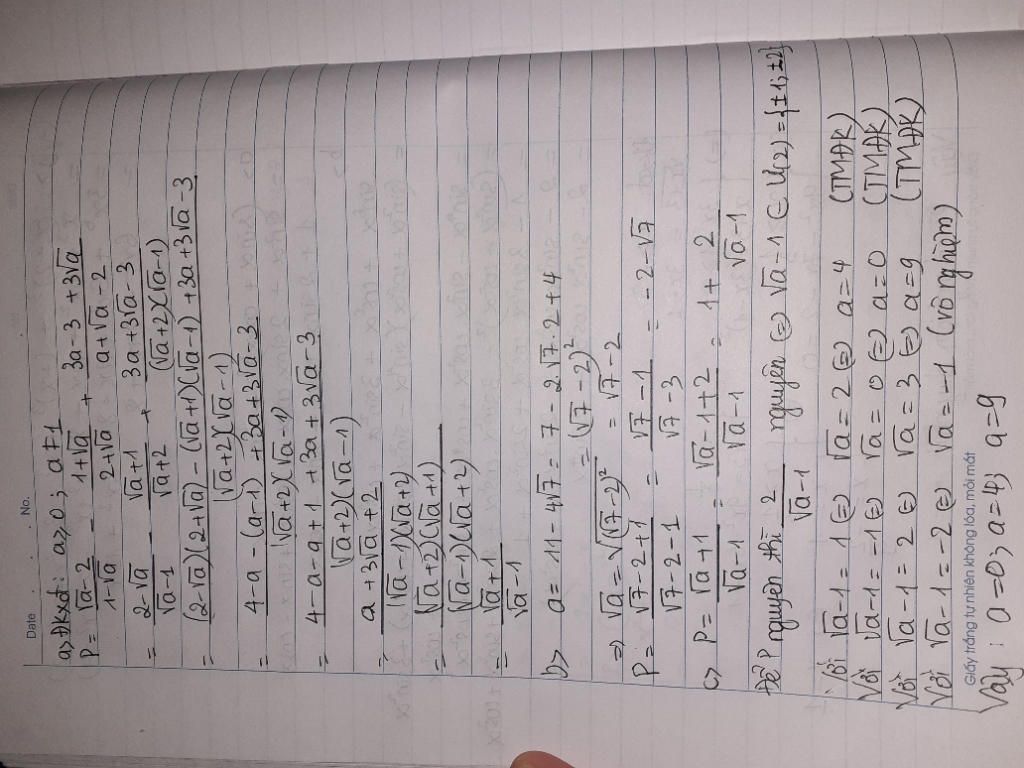 Date No.
a> Đkxđ: a≥0; a≠1
P = (√a-2)/(1-√a) - (1+√a)/(2+√a) + (3a-3+3√a)/(a+√a-2)
= (2-√a)/(√a-1) - (√a+1)/(√a+2) + (3a+3√a-3)/((√a+2)(√a-1))
= ((2-√a)(2+√a) - (√a+1)(√a-1) + 3a+3√a-3)/((√a+2)(√a-1))
= (4-a-(a-1)+3a+3√a-3)/((√a+2)(√a-1))
= (4-a-a+1+3a+3√a-3)/((√a+2)(√a-1))
= (a+3√a+2)/((√a-1)(√a+2))
= ((√a+2)(√a+1))/((√a-1)(√a+2))
= (√a+1)/(√a-1)
b> a = 11-4√7 = 7-2√7.2+4
= (√7-2)²
=> √a = √(√7-2)² = √7-2
P = (√7-2+1)/(√7-2-1) = (√7-1)/(√7-3) = -2-√7
c> P = (√a+1)/(√a-1) = (√a-1+2)/(√a-1) = 1+2/(√a-1)
Để P nguyên thì 2/(√a-1) nguyên (=) √a-1 ∈ Ư(2) = {±1; ±2}
Với √a-1 = 1 (=) √a = 2 (=) a = 4 (TMĐK)
Với √a-1 = -1 (=) √a = 0 (=) a = 0 (TMĐK)
Với √a-1 = 2 (=) √a = 3 (=) a = 9 (TMĐK)
Với √a-1 = -2 (=) √a = -1 (vô nghiệm)
Giấy trắng tự nhiên không lóa, mỏi mắt
Vậy: a=0; a=4; a=9